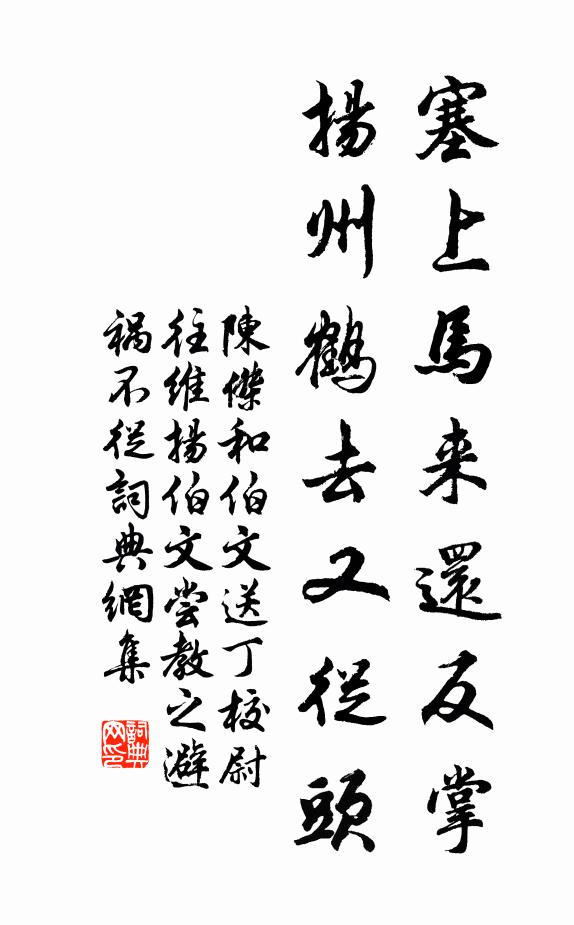 塞上馬来還反掌
揚州鶴去又從頭
陳傑和伯文送丁校尉
往維揚伯文嘗教之避
禍不從詞典網集
詞典
网印